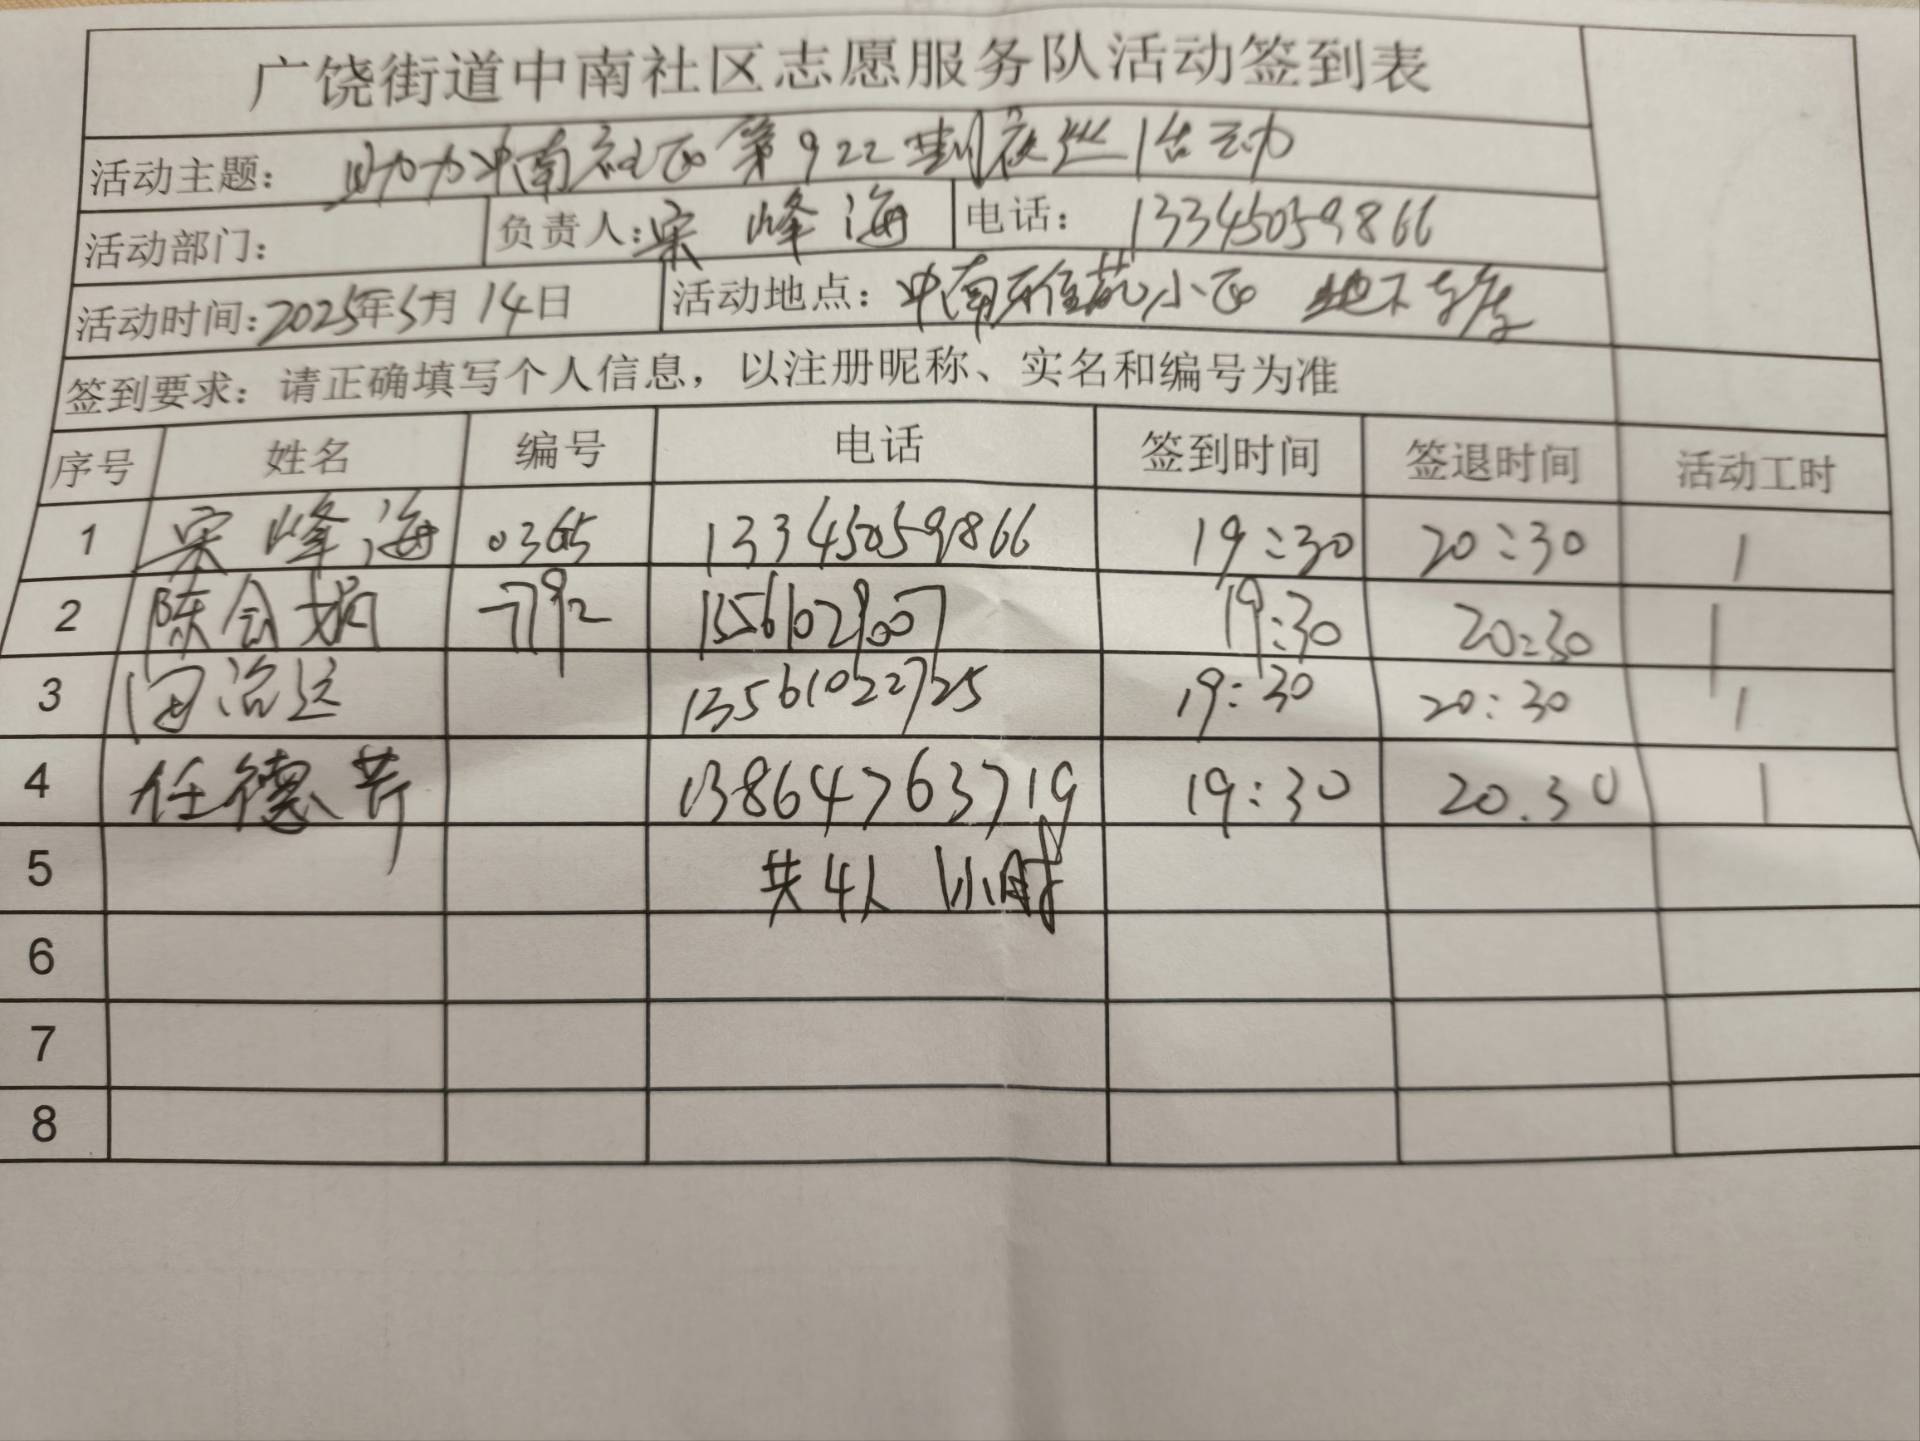 广饶街道中南社区志愿服务队活动签到表
活动主题: 助力中南社区第922封夜巡活动
活动部门: 负责人:宋峰海 电话: 13345059866
活动时间:2025年5月14日 活动地点: 中南雅苑小区 地下车库
签到要求: 请正确填写个人信息，以注册昵称、实名和编号为准
序号 姓名 编号 电话 签到时间 签退时间 活动工时
1 宋峰海 0365 13345059866 19:30 20:30 1
2 陈会娟 7792 19:30 20:30 1
3 治运 13561022725 19:30 20:30 1
4 任德芹 13864763719 19:30 20.30 1
5 共4人 1小时
6
7
8